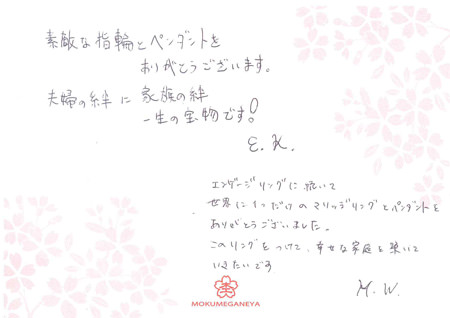 素敵な指輪とペンダントを
ありがとうございます。
夫婦の絆に 家族の絆
一生の宝物です!
E. K.
エンゲージリングに続いて
世界に1つだけのマリッジリングとペンダントを
ありがとうございました。
このリングをつけて、幸せな家庭を築いて
いきたいです
M. W.
MOKUMEGANEYA